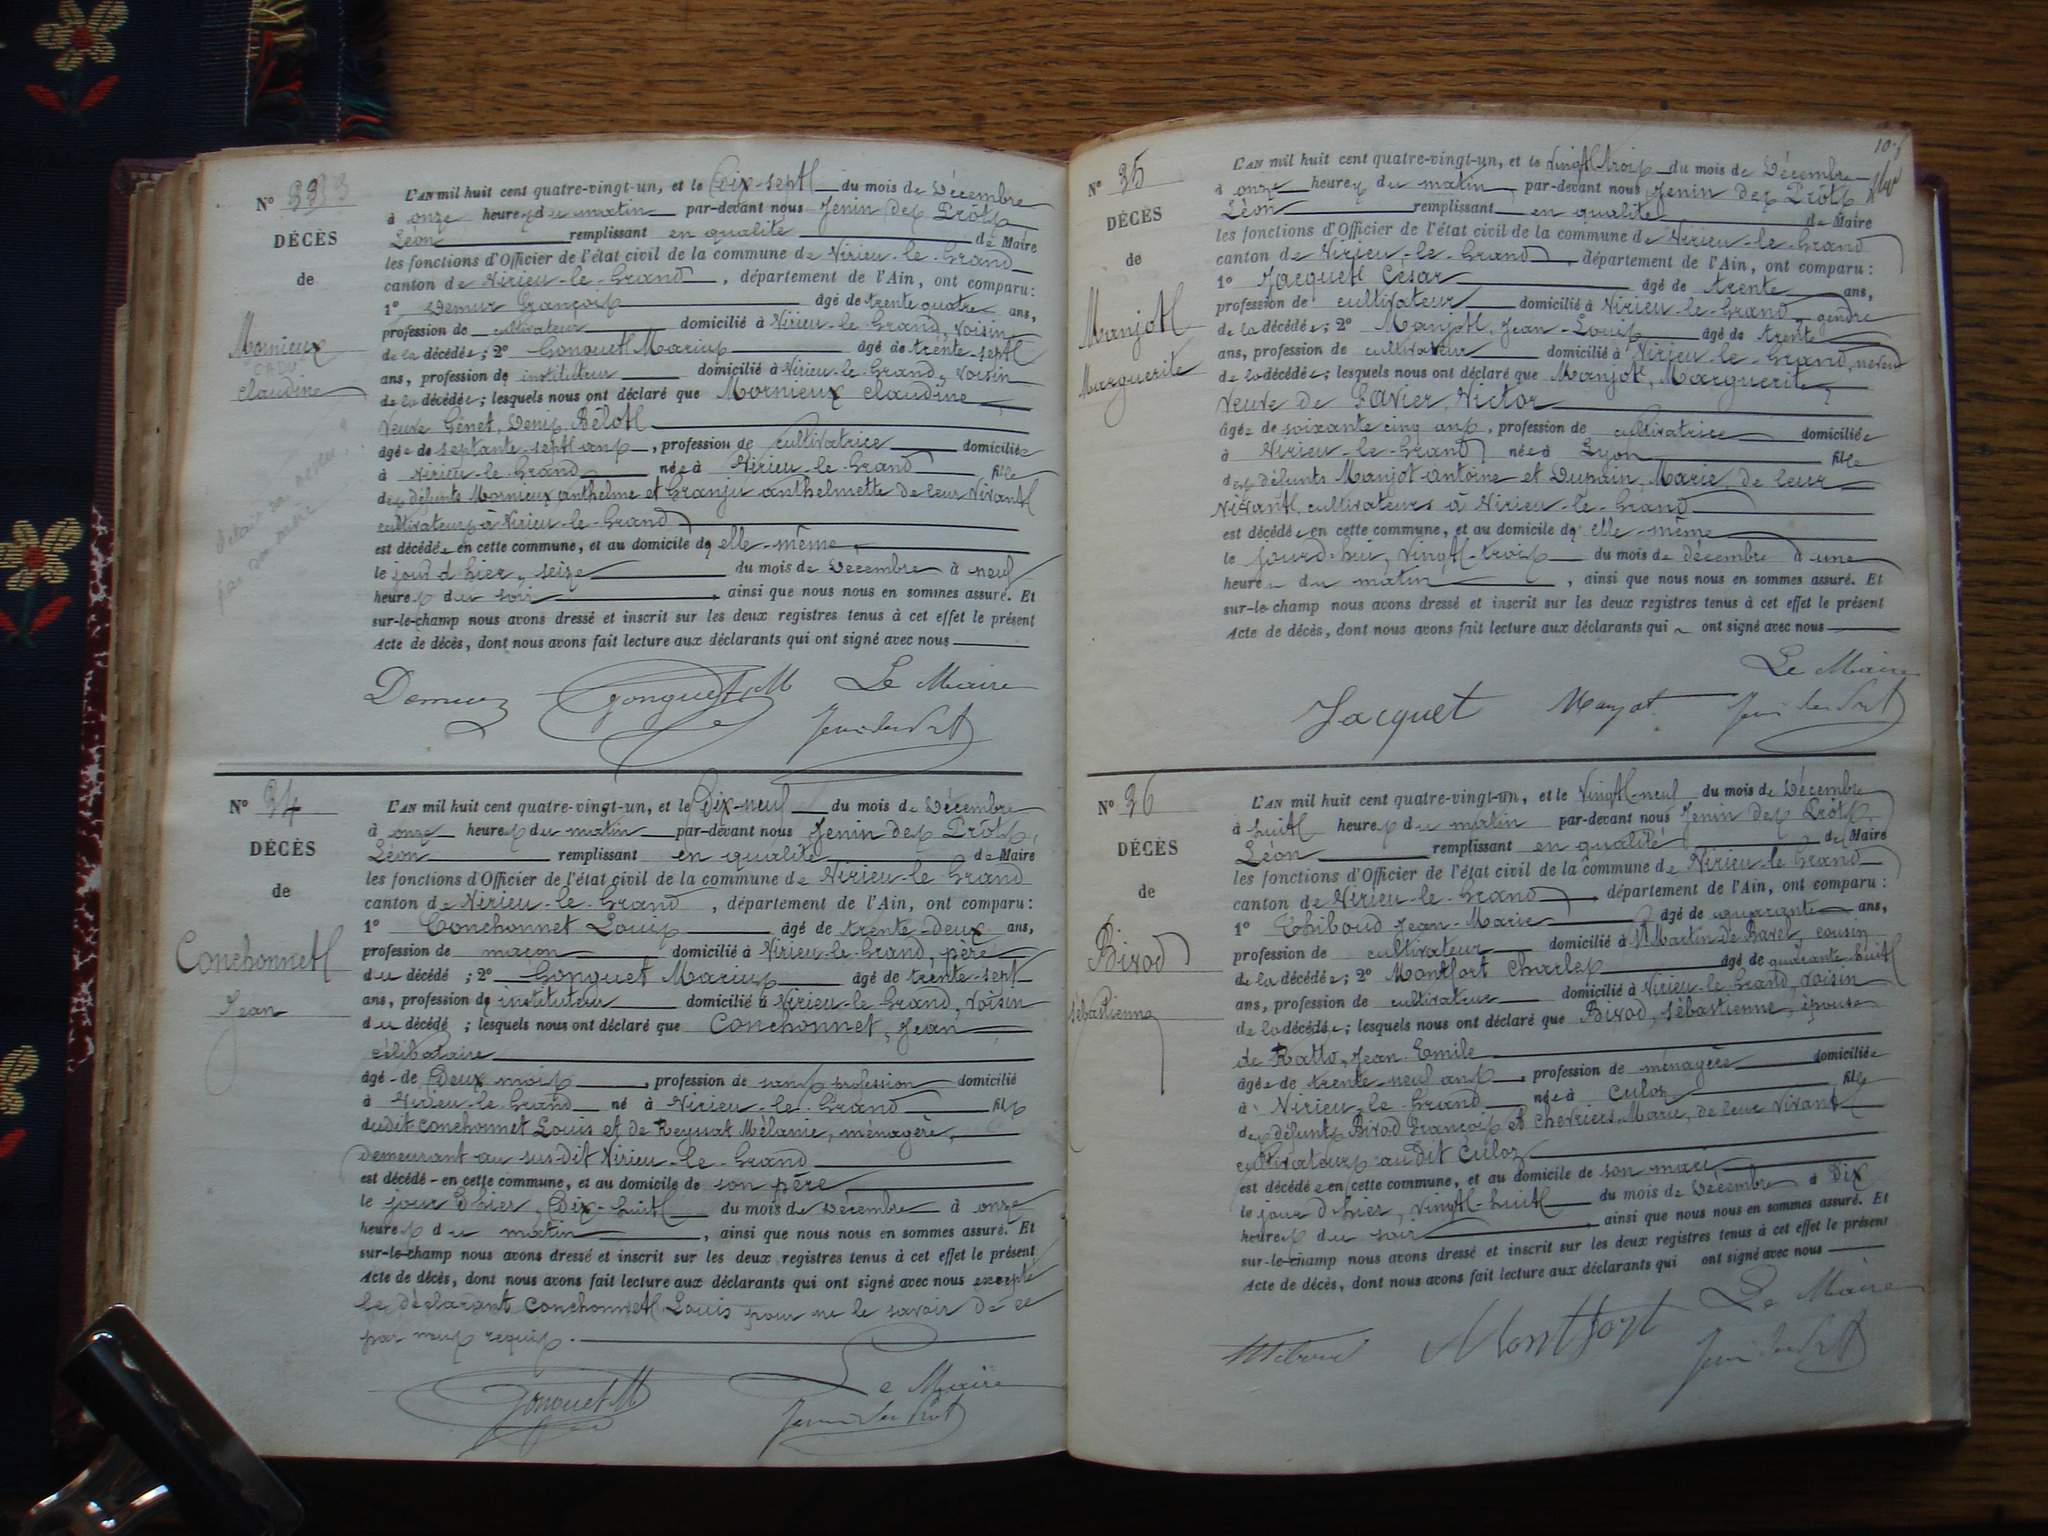 N° 33
DÉCÈS
de
Mornieux
Claudine
L'AN mil huit cent quatre-vingt-un, et le Dix-sept du mois de Décembre
à onze heures du matin par-devant nous Jenin des Prôts
Léon remplissant en qualité de Maire
les fonctions d'Officier de l'état civil de la commune de Virieu-le-Grand
canton de Virieu-le-Grand, département de l'Ain, ont comparu :
1° Demur François âgé de trente quatre ans,
profession de cultivateur domicilié à Virieu-le-Grand, voisin
de la décédée; 2° Gonguet Marius âgé de trente-sept
ans, profession de instituteur domicilié à Virieu-le-Grand, voisin
de la décédée; lesquels nous ont déclaré que Mornieux Claudine
veuve Génet, Denis, Bélot
âgée de septante-sept ans, profession de cultivatrice domiciliée
à Virieu-le-Grand née à Virieu-le-Grand fille
des défunts Mornieux anthelme et Granju anthelmette de leur vivant
cultivateurs à Virieu-le-Grand
est décédée en cette commune, et au domicile de elle-même,
le jour d'hier, seize du mois de Décembre à neuf
heures du soir, ainsi que nous nous en sommes assuré. Et
sur-le-champ nous avons dressé et inscrit sur les deux registres tenus à cet effet le présent
Acte de décès, dont nous avons fait lecture aux déclarants qui ont signé avec nous
Demur Gonguet M Le Maire
N° 34
DÉCÈS
de
Conchonnet
Jean
L'AN mil huit cent quatre-vingt-un, et le Dix-neuf du mois de Décembre
à onze heures du matin par-devant nous Jenin des Prôts,
Léon remplissant en qualité de Maire
les fonctions d'Officier de l'état civil de la commune de Virieu-le Grand
canton de Virieu-le-Grand, département de l'Ain, ont comparu :
1° Conchonnet Louis âgé de trente-deux ans,
profession de maçon domicilié à Virieu-le-Grand, père
du décédé ; 2° Gonguet Marius âgé de trente-sept
ans, profession de instituteur domicilié à Virieu-le-Grand, voisin
du décédé ; lesquels nous ont déclaré que Conchonnet, Jean
célibataire
âgé de Deux mois, profession de sans profession domicilié
à Virieu-le-Grand né à Virieu-le-Grand fils
dudit Conchonnet Louis et de Reyssat Mélanie, ménagère,
demeurant au sus-dit Virieu-le-Grand
est décédé en cette commune, et au domicile de son père
le jour d'hier, Dix-huit du mois de Décembre à onze
heures du matin, ainsi que nous nous en sommes assuré. Et
sur-le-champ nous avons dressé et inscrit sur les deux registres tenus à cet effet le présent
Acte de décès, dont nous avons fait lecture aux déclarants qui ont signé avec nous excepté
le déclarant Conchonnet Louis pour ne le savoir de ce
par nous requis.
Gonguet M Le Maire
N° 35
DÉCÈS
de
Manjot
Marguerite
L'AN mil huit cent quatre-vingt-un, et le vingt-trois du mois de Décembre
à onze heures du matin, par-devant nous Jenin des Prôts
Léon remplissant en qualité de Maire
les fonctions d'Officier de l'état civil de la commune de Virieu-le-Grand
canton de Virieu-le-Grand, département de l'Ain, ont comparu :
1° Jacquet César âgé de trente ans,
profession de cultivateur domicilié à Virieu-le-Grand, gendre
de la décédée; 2° Manjot, Jean-Louis âgé de trente
ans, profession de cultivateur domicilié à Virieu-le-Grand, neveu
de la décédée; lesquels nous ont déclaré que Manjot, Marguerite,
veuve de Favier, Victor
âgée de soixante cinq ans, profession de cultivatrice domiciliée
à Virieu-le-Grand née à Lyon fille
des défunts Manjot Antoine et Dupain, Marie, de leur
vivant, cultivateurs à Virieu-le-Grand
est décédée en cette commune, et au domicile de elle-même
le jourd'hui, vingt-trois du mois de décembre à une
heure du matin, ainsi que nous nous en sommes assuré. Et
sur-le-champ nous avons dressé et inscrit sur les deux registres tenus à cet effet le présent
Acte de décès, dont nous avons fait lecture aux déclarants qui ont signé avec nous
Le Maire
Jacquet Manjot
N° 36
DÉCÈS
de
Bivod
Sébastienne
L'AN mil huit cent quatre-vingt-un, et le Vingt-neuf du mois de Décembre
à huit heures du matin par-devant nous Jenin des Prôts,
Léon remplissant en qualité de Maire
les fonctions d'Officier de l'état civil de la commune de Virieu-le Grand
canton de Virieu-le-Grand, département de l'Ain, ont comparu :
1° Thiboud Jean-Marie âgé de quarante ans,
profession de cultivateur domicilié à St Martin de Bavel, cousin
de la décédée; 2° Montfort Charles âgé de quarante-huit
ans, profession de cultivateur domicilié à Virieu-le-Grand, voisin
de la décédée; lesquels nous ont déclaré que Bivod, Sébastienne, épouse
de Ratto, Jean-Emile
âgée de trente-neuf ans, profession de ménagère domiciliée
à Virieu-le-Grand née à Culoz fille
des défunts Bivod François et Chevriers Marie, de leur vivant
cultivateurs audit Culoz
est décédée en cette commune, et au domicile de son mari
le jour d'hier, vingt-huit du mois de Décembre à Dix
heures du soir, ainsi que nous nous en sommes assuré. Et
sur-le-champ nous avons dressé et inscrit sur les deux registres tenus à cet effet le présent
Acte de décès, dont nous avons fait lecture aux déclarants qui ont signé avec nous
Thiboud Montfort Le Maire